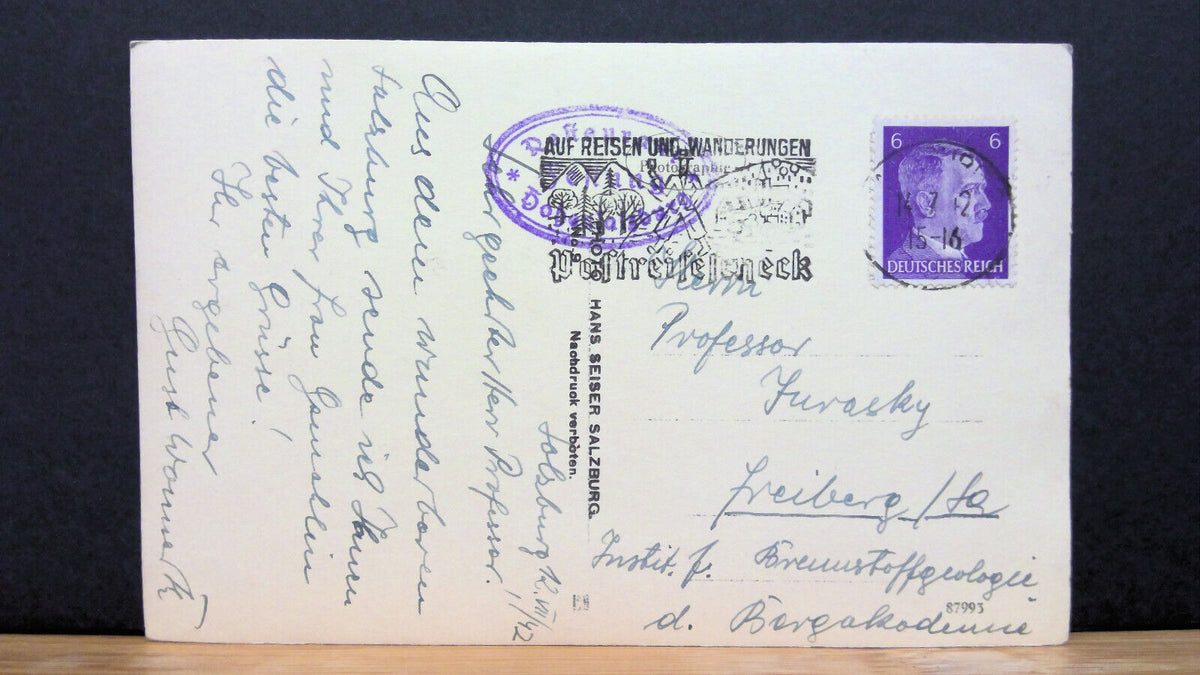 Salzburg 12.VII./42
Sehr geehrter Herr Professor!
Aus dem wunderbaren
Salzburg sende ich Ihnen
und Ihrer Frau Gemahlin
die besten Grüsse!
Ihr ergebener
Gust
AUF REISEN UND WANDERUNGEN
Photographie
Postreisescheck
HANS SEISER SALZBURG.
Nachdruck verboten.
6 6
14.7.42
15-16
DEUTSCHES REICH
Herrn
Professor
Jurasky
Freiberg/Sa
Instit. f. Brennstoffgeologie
d. Bergakademie
87993